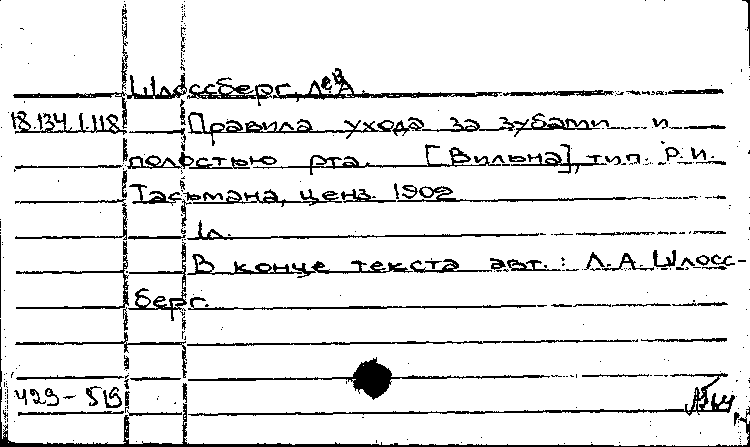 Шлоссберг, Лев А.
18.134.1.118 Правила ухода за зубами и
полостью рта. [Вильна], тип. Р.И.
Тасьмана, ценз. 1902
1л.
В конце текста авт.: Л.А. Шлосс-
берг.
429-519